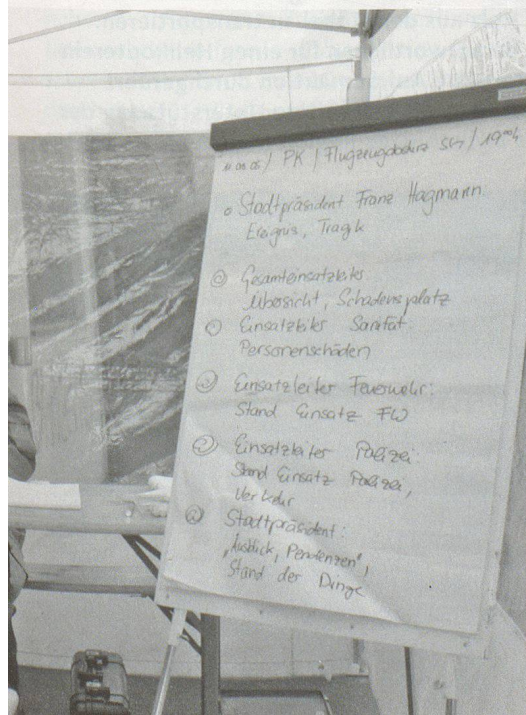 11.05.05 / PK / Flugzeugabsturz SG / 19⁰⁰h
Stadtpräsident Franz Hagmann
Ereignis, Tragik
Gesamteinsatzleiter
Übersicht, Schadensplatz
Einsatzleiter Sanität:
Personenschäden
Einsatzleiter Feuerwehr:
Stand Einsatz FW
Einsatzleiter Polizei:
Stand Einsatz Polizei,
Verkehr
Stadtpräsident:
„Ausblick, Pendenzen",
Stand der Dinge